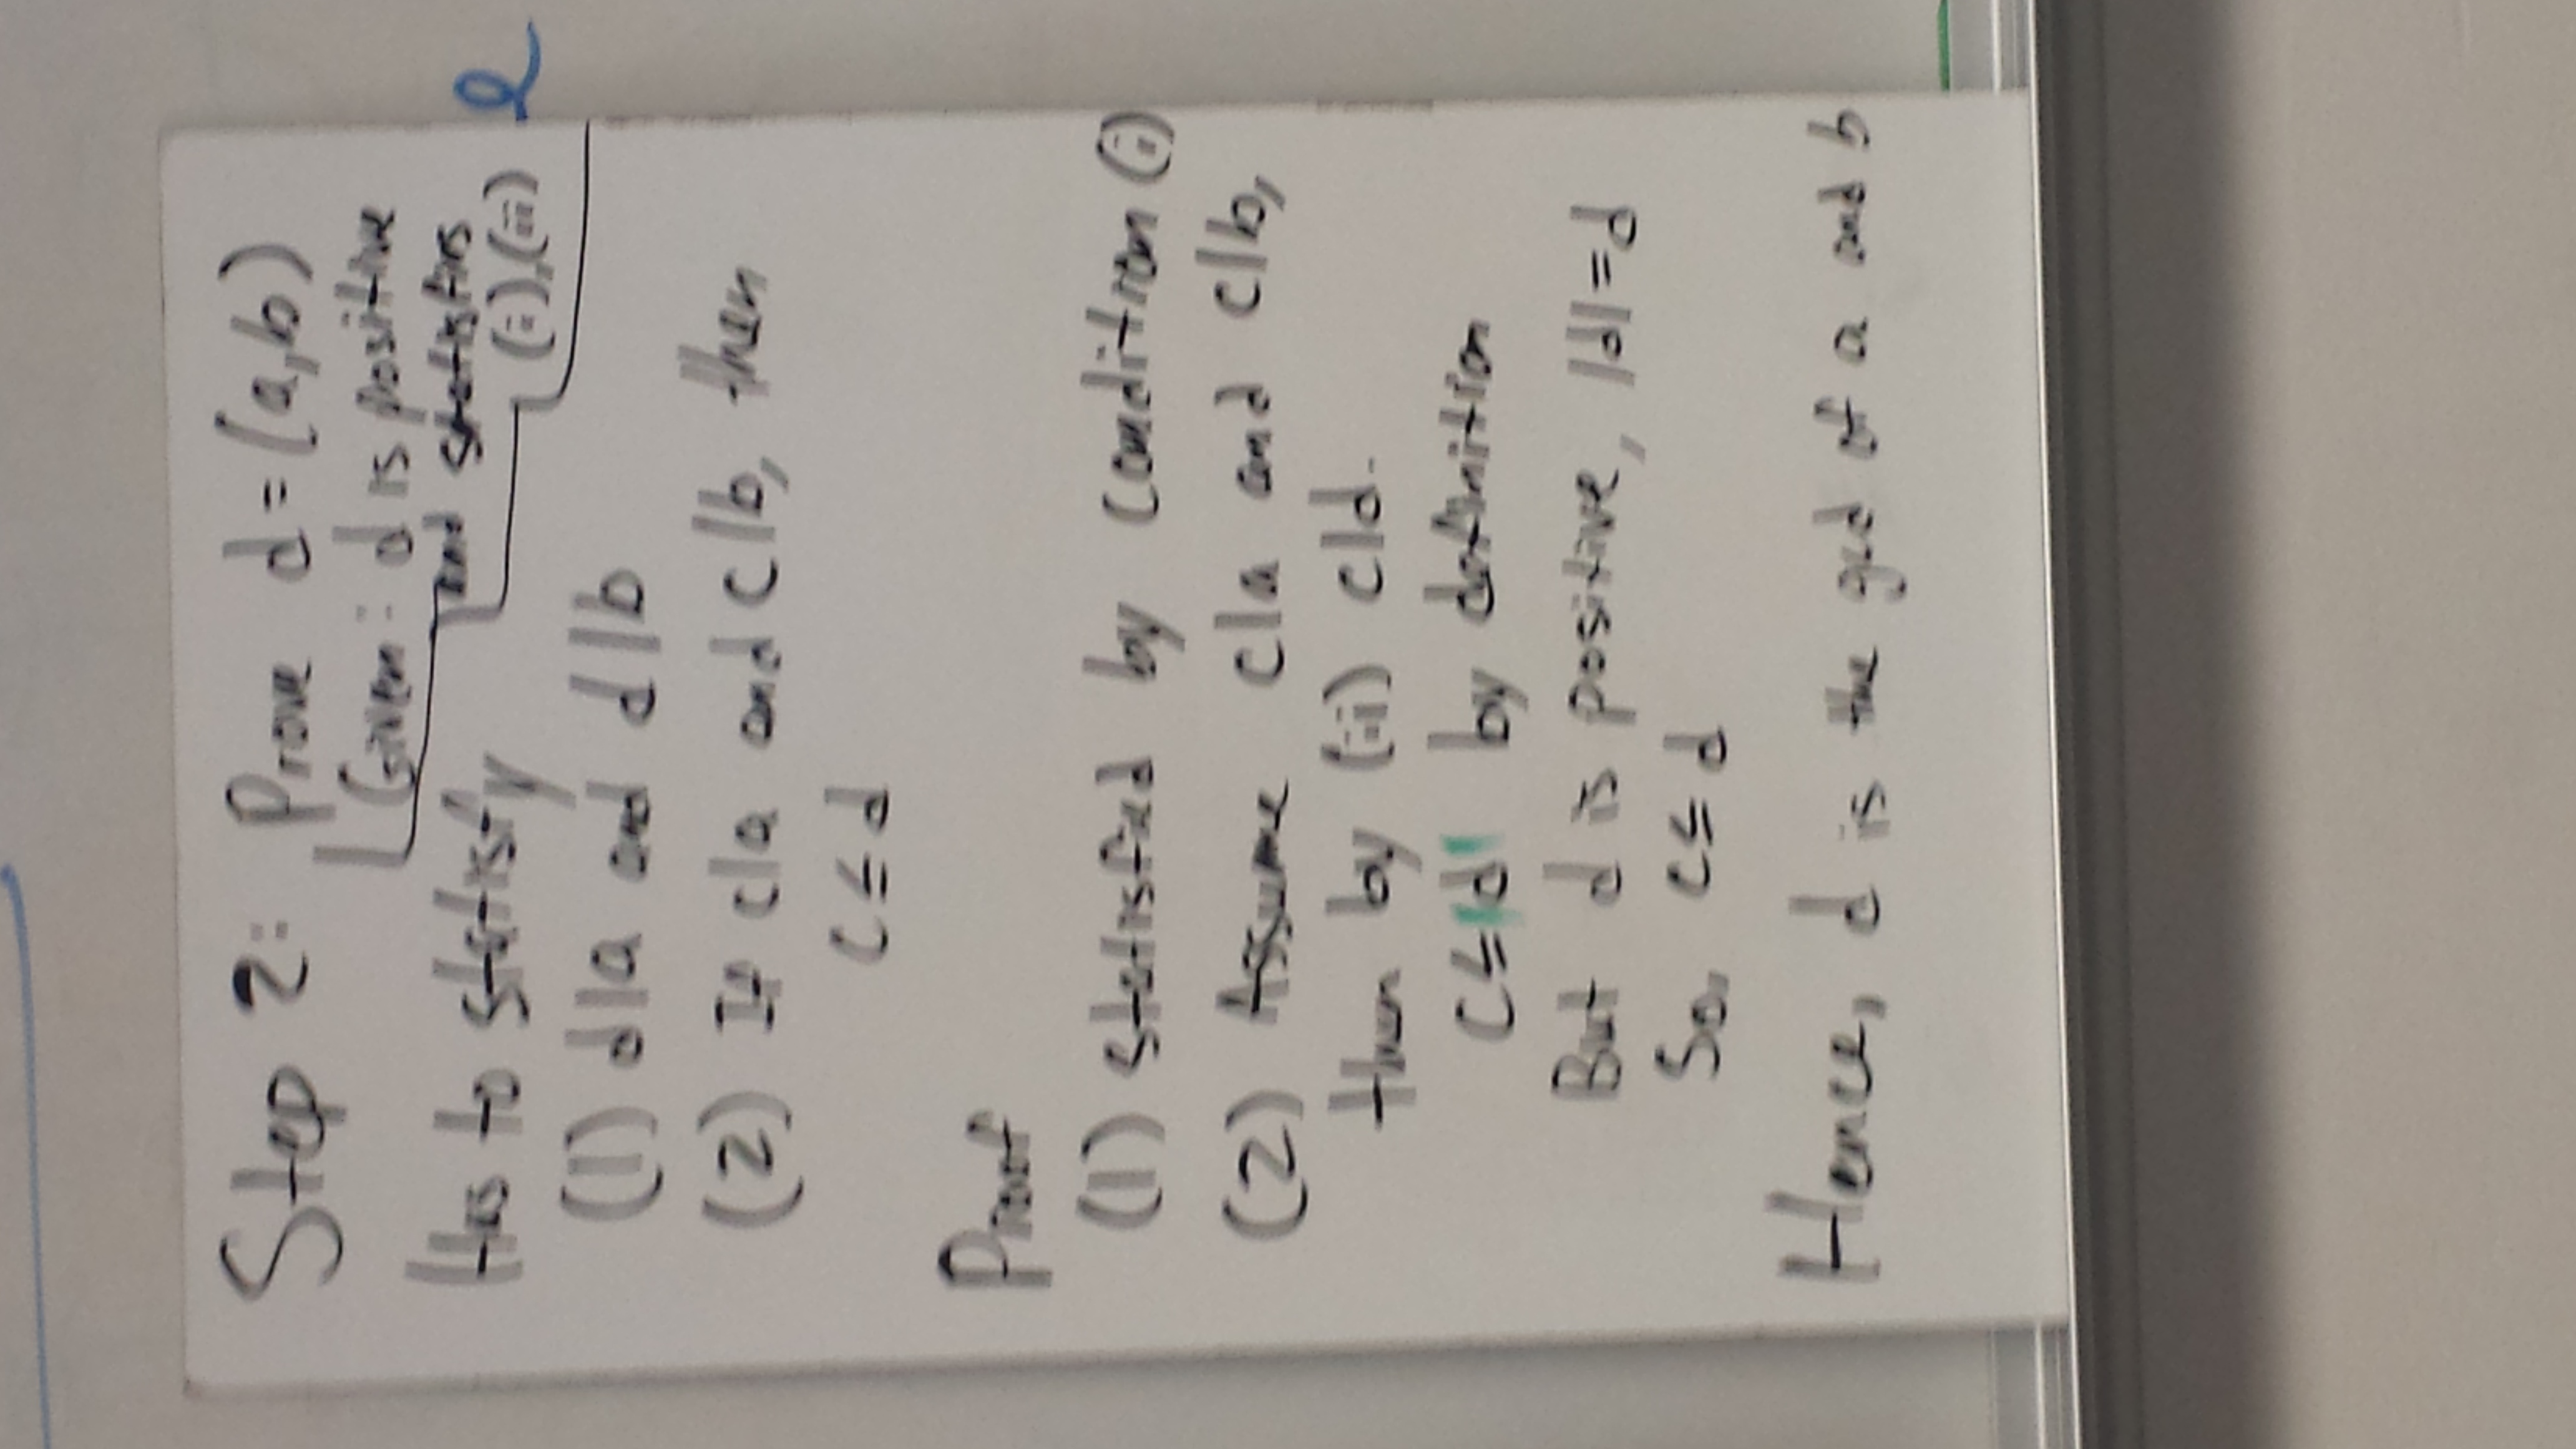 Step 2: Prove d = (a,b)
Given: d is positive
and satisfies
(i),(ii)
Has to satisfy
(1) d|a and d|b
(2) If c|a and c|b, then
c ≤ d
Proof
(1) satisfied by condition (i)
(2) Assume c|a and c|b,
then by (ii) c|d.
c ≤ |d| by definition
But d is positive, |d| = d
So, c ≤ d
Hence, d is the gcd of a and b